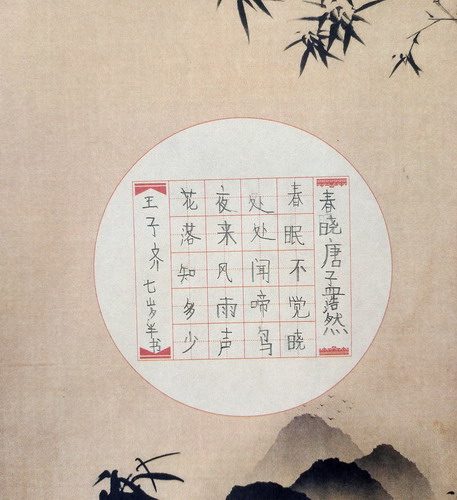 春晓唐孟浩然
春眠不觉晓
处处闻啼鸟
夜来风雨声
花落知多少
王子齐七岁半书